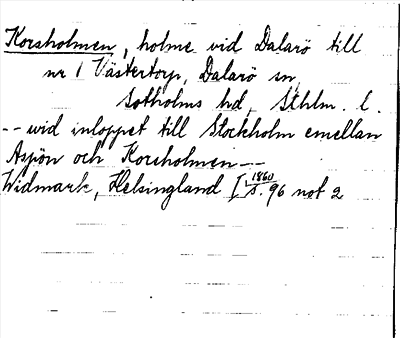 Korsholmen, holme vid Dalarö till
nr 1 Västertorp, Dalarö sn,
Sotholms hd, Sthlm. l.
-- wid inloppet till Stockholm emellan
Aspön och Korsholmen --
Widmark, Helsingland I 1860 s. 96 not 2